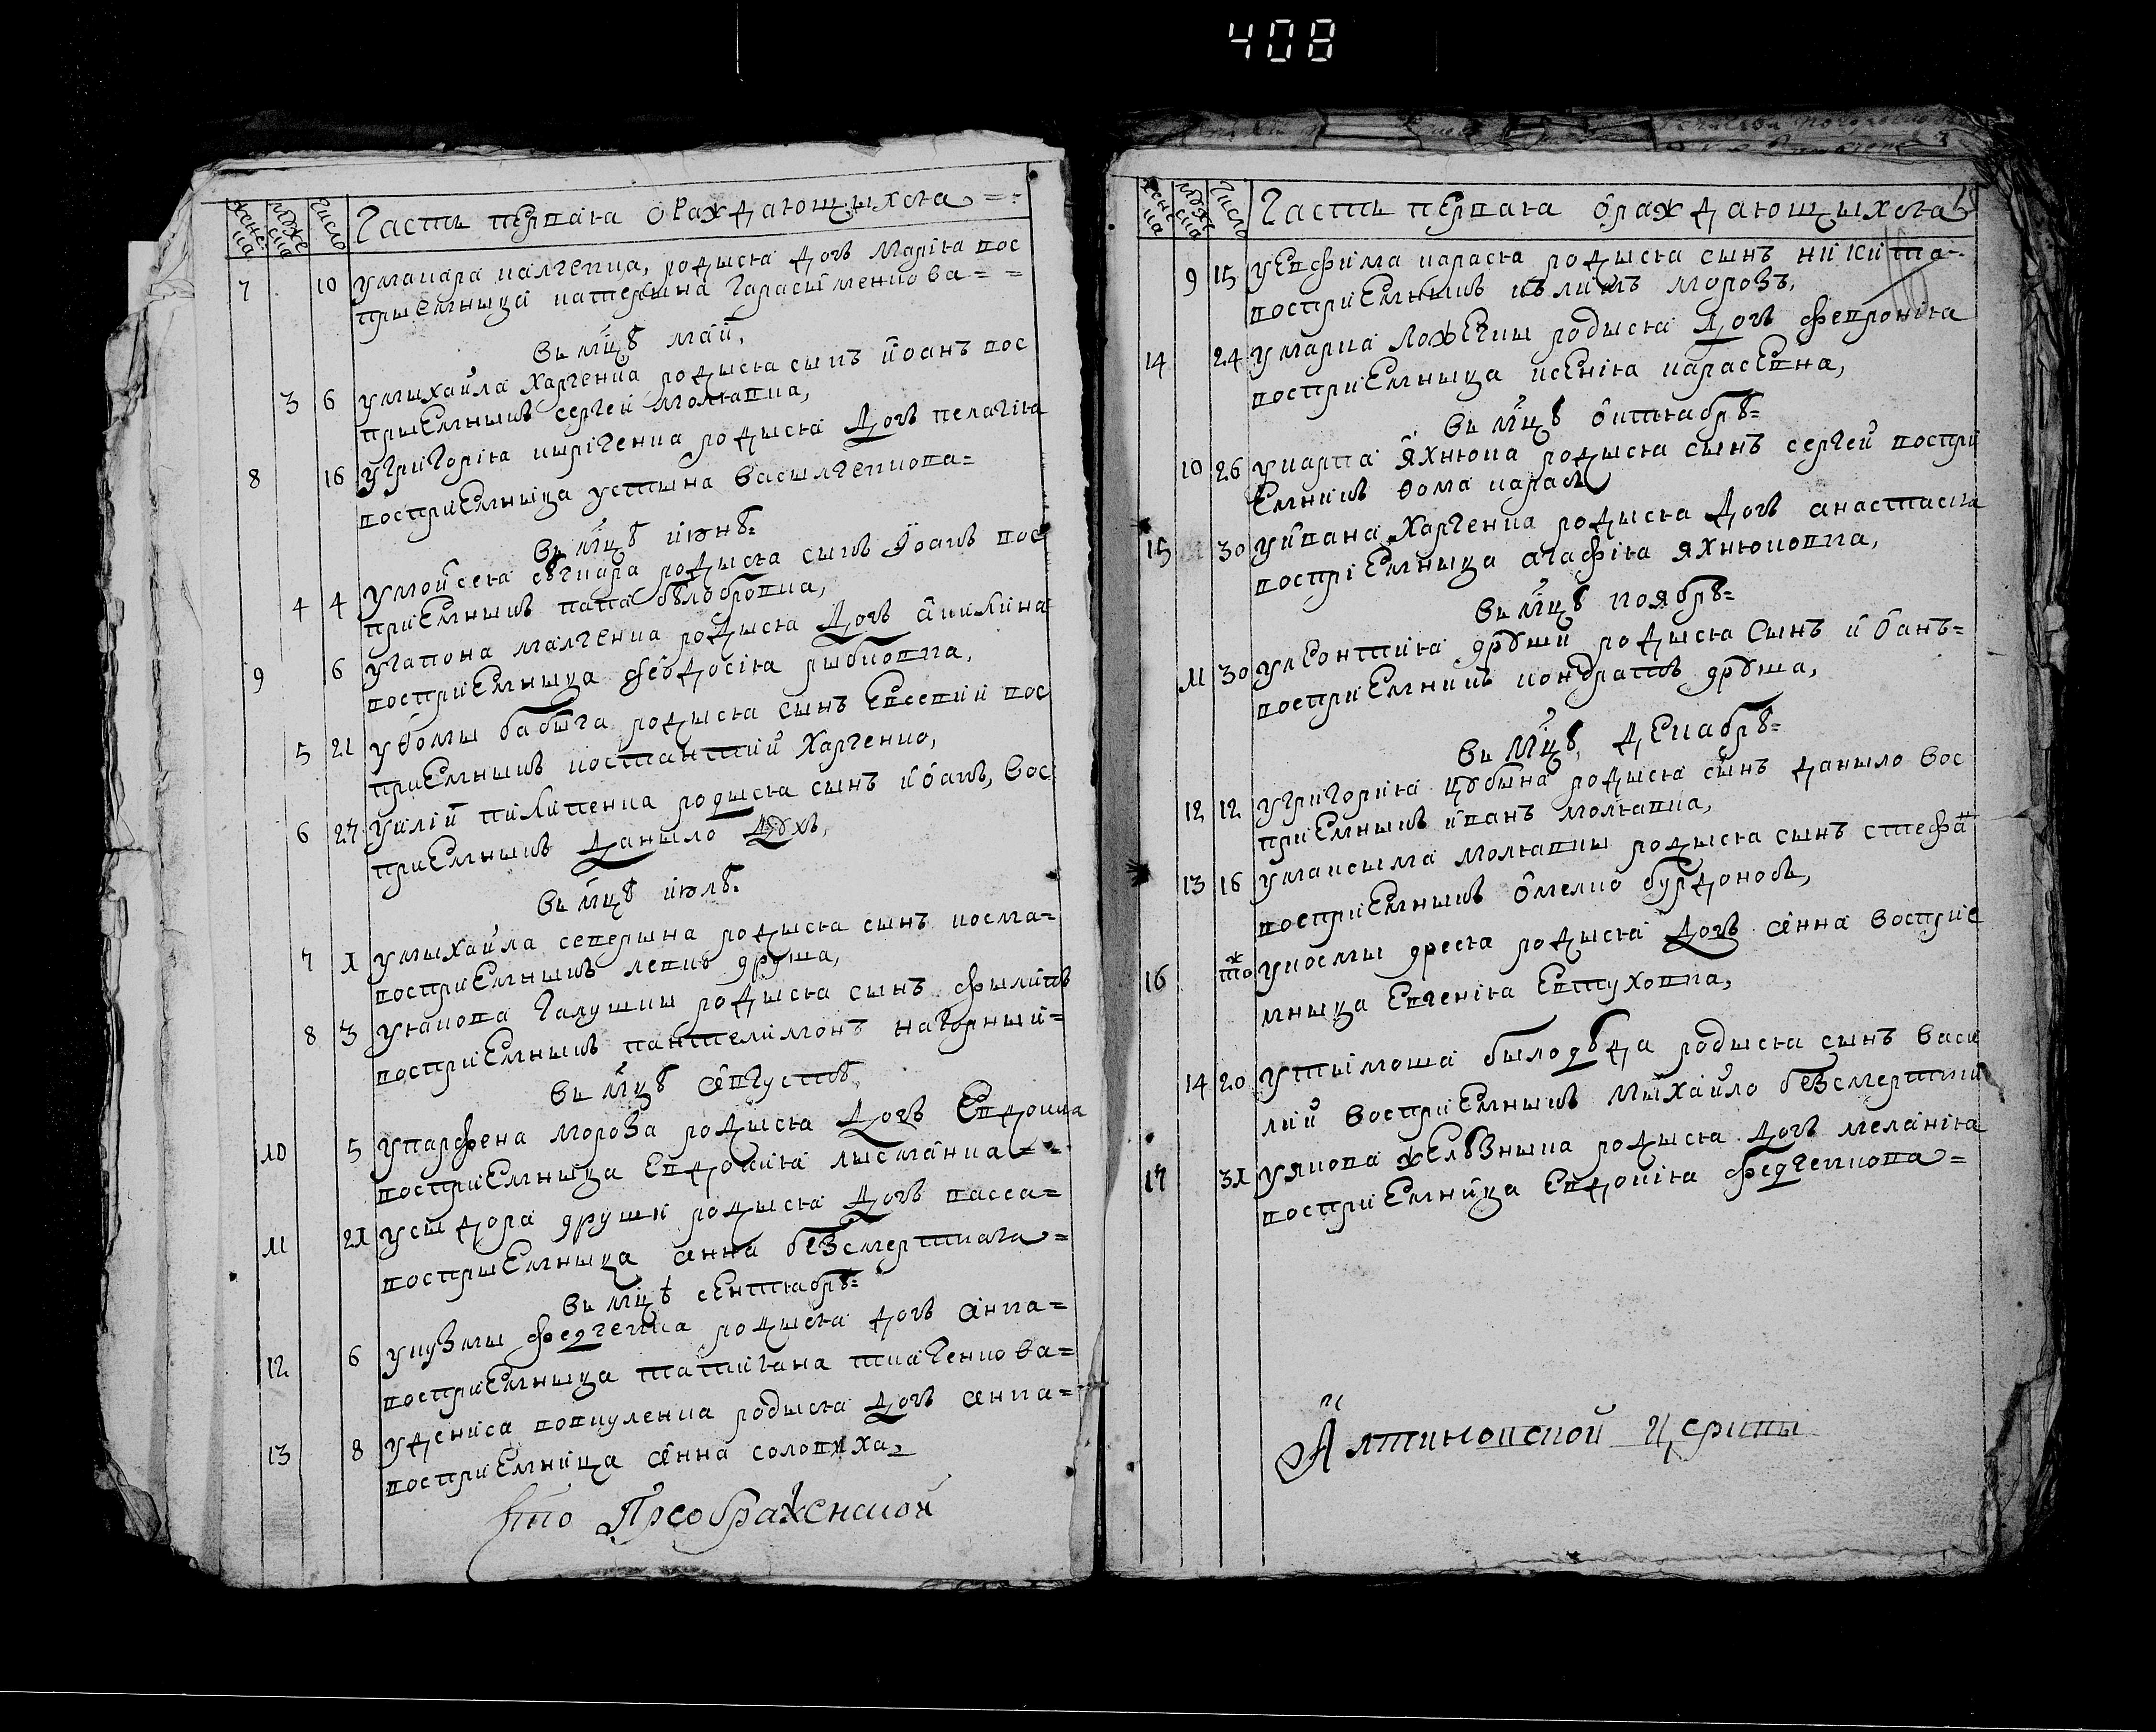 408
женска
мужеска
число
Часть первая ораждающыхся =:
7 10 у макара калченка, родыся дочъ марія вос
прыемныца катерына гарасыменкова = =
въ мцѣ май,
3 6 у мыхайла харченка родыся сынъ йоанъ вос
прыемныкъ сергей молявка,
8 16 у григорія кыріченка родыся дочъ пелагія
восприемныца устына васылченкова =
въ мцѣ июнѣ =
4 4 у мойсея родыся сынъ йоанъ вос
приемныкъ бѣлобровка,
9 6 у гапона малченка родыся дочъ акилина
восприемныца феодосія рыбковна,
5 21 у ѳомы бабыча родыся сынъ евсевий вос
приемныкъ костантий харченко,
6 27 у илій пилипенка родыся сынъ иоанъ, вос
приемныкъ даныло дѣхъ,
въ мцѣ июлѣ =
7 1 у мыхайла северына родыся сынъ косма =
восприемныкъ левко друша,
8 3 у якова галушки родыся сынъ филипъ
восприемныкъ пантелимонъ нагорный =
въ мцѣ августѣ
10 5 у парфена мороза родыся дочъ евдокия
восприемныца евдокия лысманка =
11 21 у сыдора друшки родыся дочъ васса =
воспрыемныца анна безсмертная =
въ мцѣ сентябрѣ =
12 6 у кузмы федченка родыся дочъ анна =
восприемныца татияна ткаченкова =
13 8 у дениса вовкуленка родыся дочъ анна =
восприемница анна соловиха =
Свято Преображенской
женска
мужеска
число
Часть первая ораждающыхся
9 15 у евфима карася родыся сынъ никита =
восприемныкъ климъ морозъ,
14 24 у марка ложечки родыся дочъ февронія
восприемныца ксенія карасевна,
въ мцѣ октябрѣ =
10 26 у карпа яхнюка родыся сынъ сергей воспри
емникъ ѳома карась
15 30 у йвана харченка родыся дочъ анастасия
воспріемныца агафія яхнюковна,
въ мцѣ ноябрѣ =
11 30 у леонтия друши родыся сынъ иоанъ =
восприемникъ кондратъ друша,
въ мцѣ декабрѣ =
12 12 у григория цубына родыся сынъ даныло вос
приемныкъ иванъ молявка,
13 16 у максыма молявки родыся сынъ стефа
восприемныкъ омелко бурдоновъ,
16 то ж у космы дреся родыся дочъ анна восприе
мныца евгенія евтуховна,
14 20 у тымоша былодѣда родыся сынъ васи
лий восприемныкъ мыхайло безсмертный
17 31 у якова желѣзныка родыся дочъ меланія
восприемница евдокія федченкова =
Алтиновской церкви